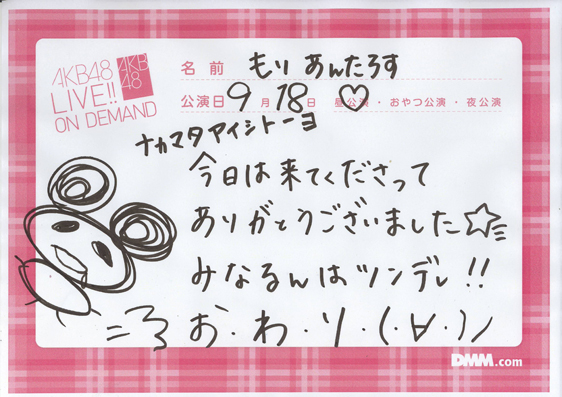 AKB48
LIVE!!
ON DEMAND
AKB
48
名前 もりあんたろす
公演日 9月18日 ♡ 昼公演・おやつ公演・夜公演
ナカマタアイシトーヨ
今日は来てくださって
ありがとうございました☆
みなるんはツンデレ!!
お・わ・り・(・∀・)ノ
DMM.com